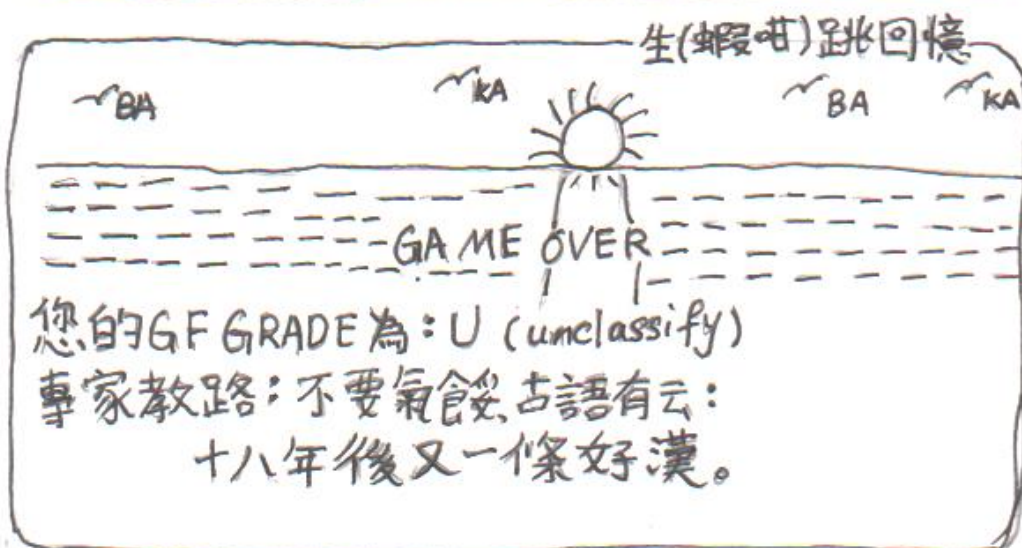 生(蝦咁)跳回憶
BA KA BA KA
GAME OVER
您的GF GRADE為：U (unclassify)
專家教路：不要氣餒、古語有云：
十八年後又一條好漢。